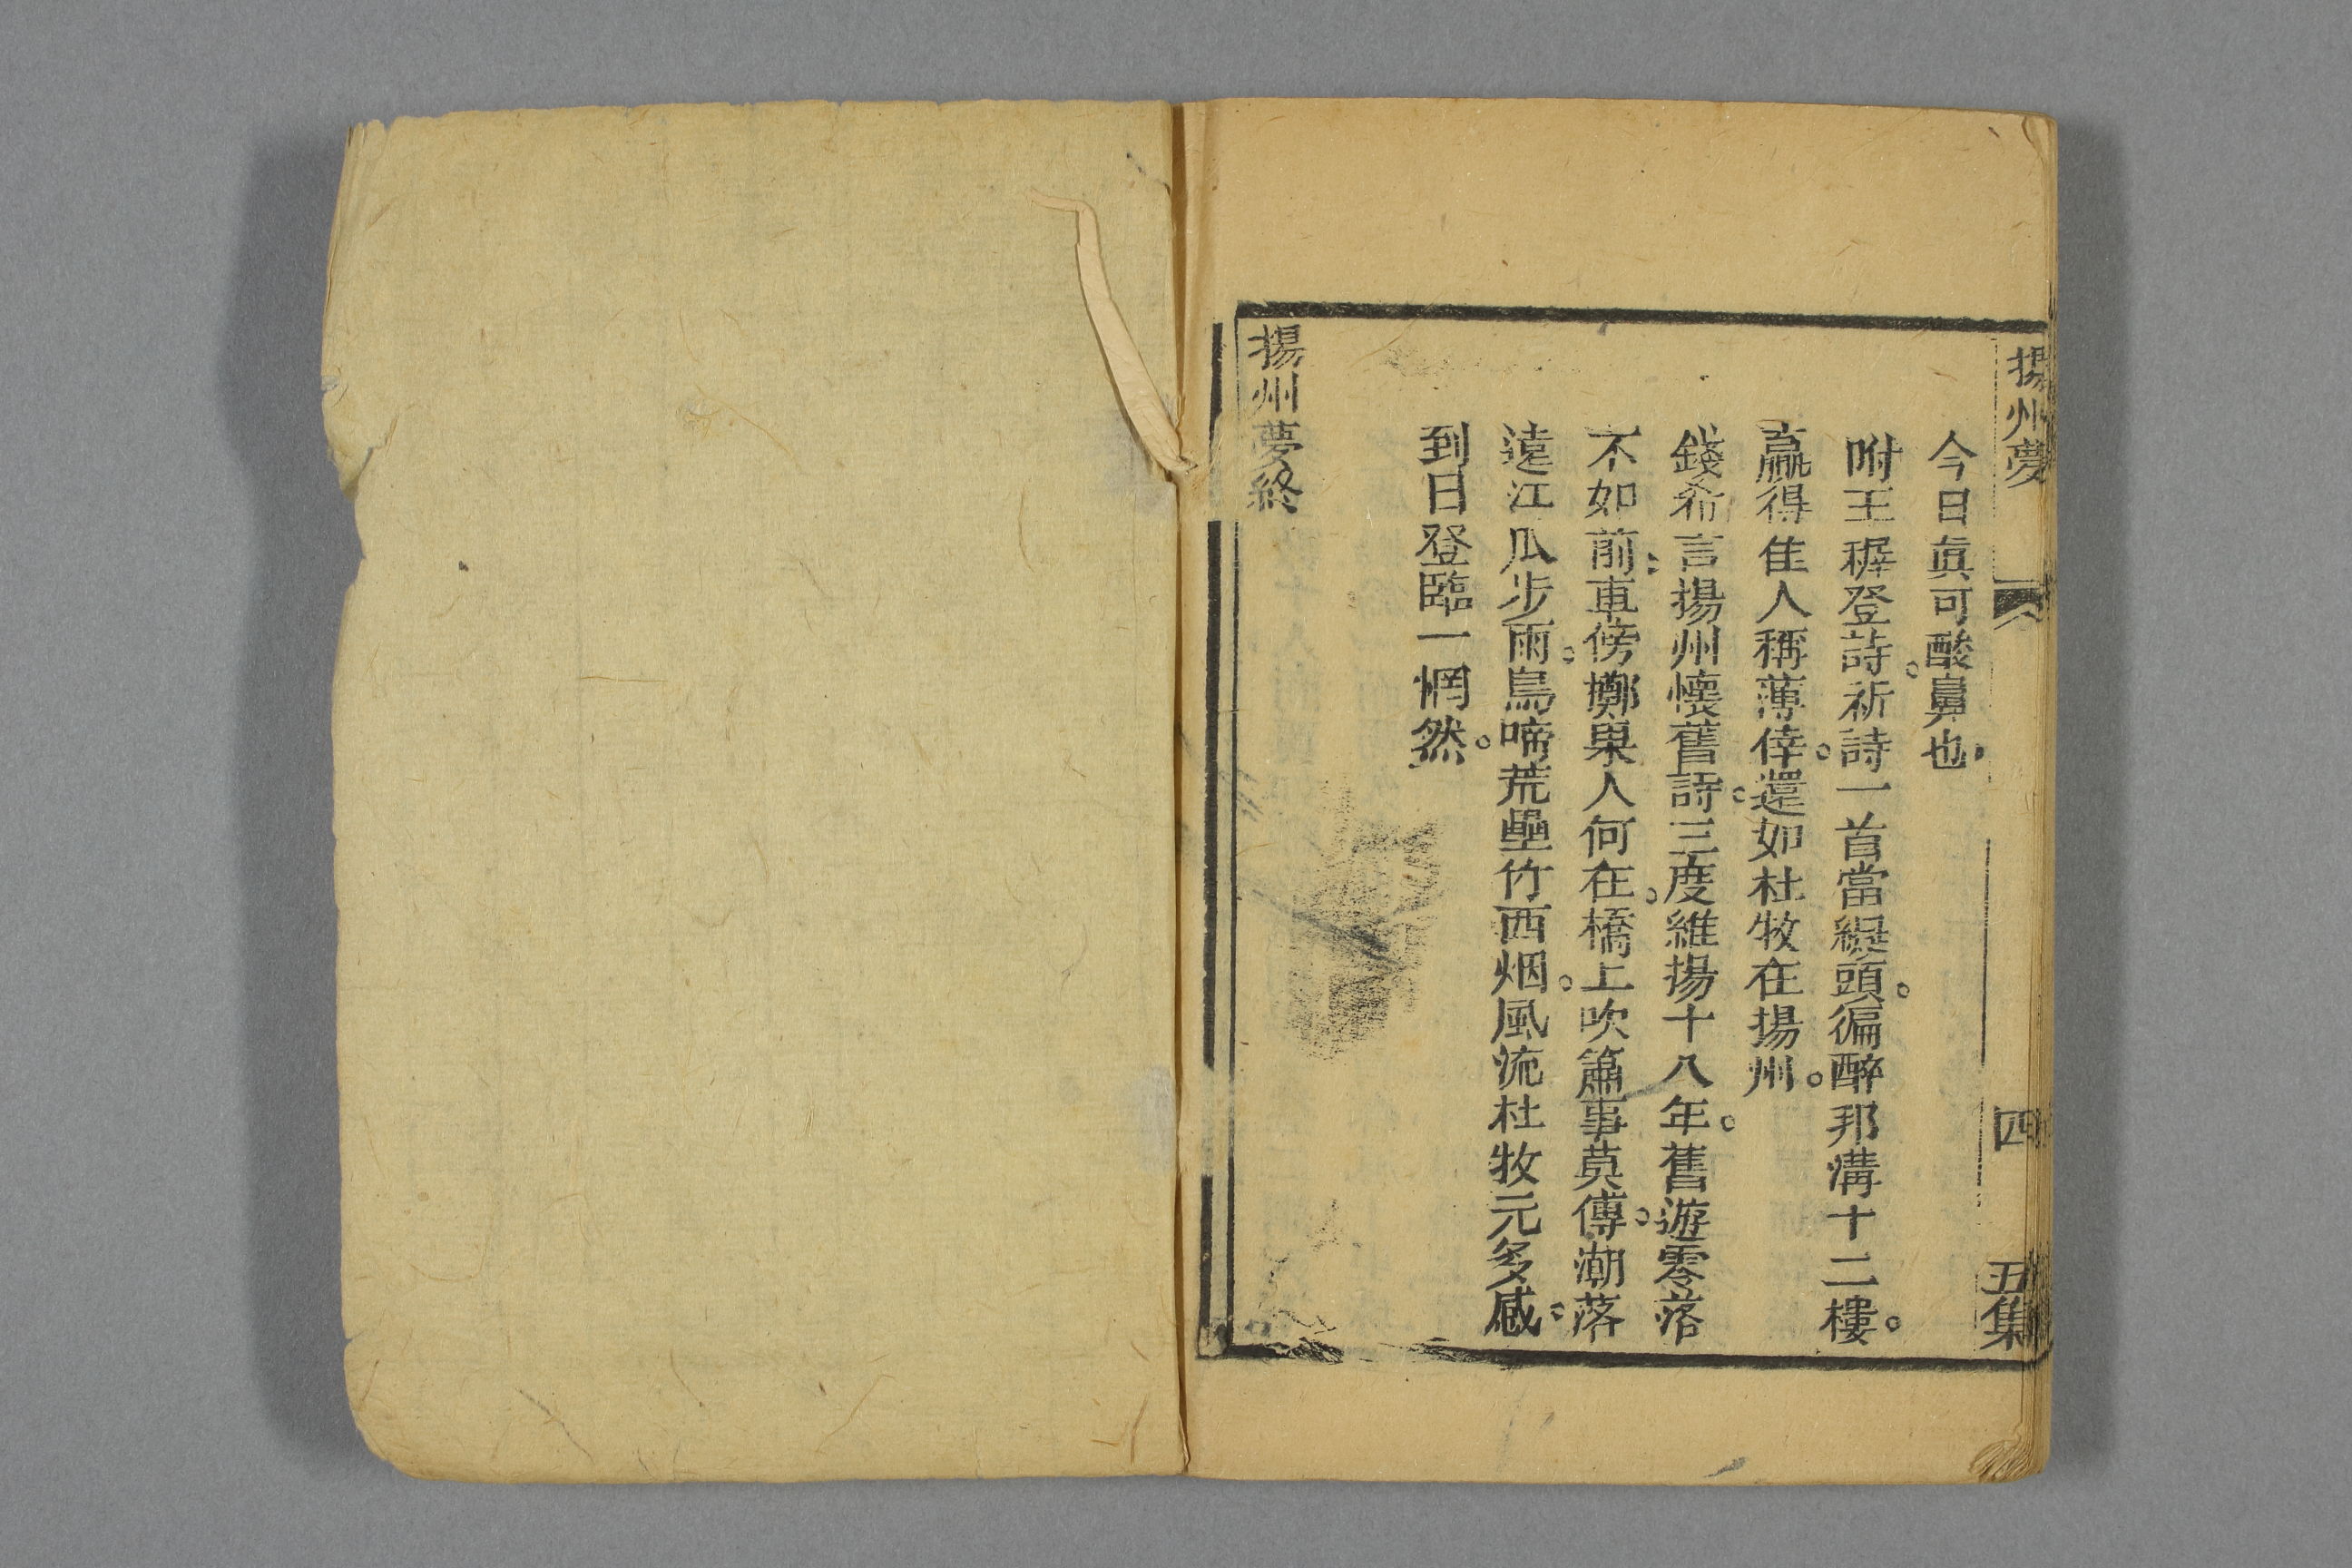 揚州夢
四
五集
今日真可酸鼻也
附王穉登詩。祈詩一首當纏頭。徧醉邗溝十二樓。
贏得佳人稱薄倖。還如杜牧在揚州。
錢希言揚州懷舊詩。三度維揚十八年。舊遊零落
不如前。車傍擲果人何在。橋上吹簫事莫傳。潮落
遠江瓜步雨。鳥啼荒壘竹西烟。風流杜牧元多感。
到日登臨一惘然。
揚州夢終